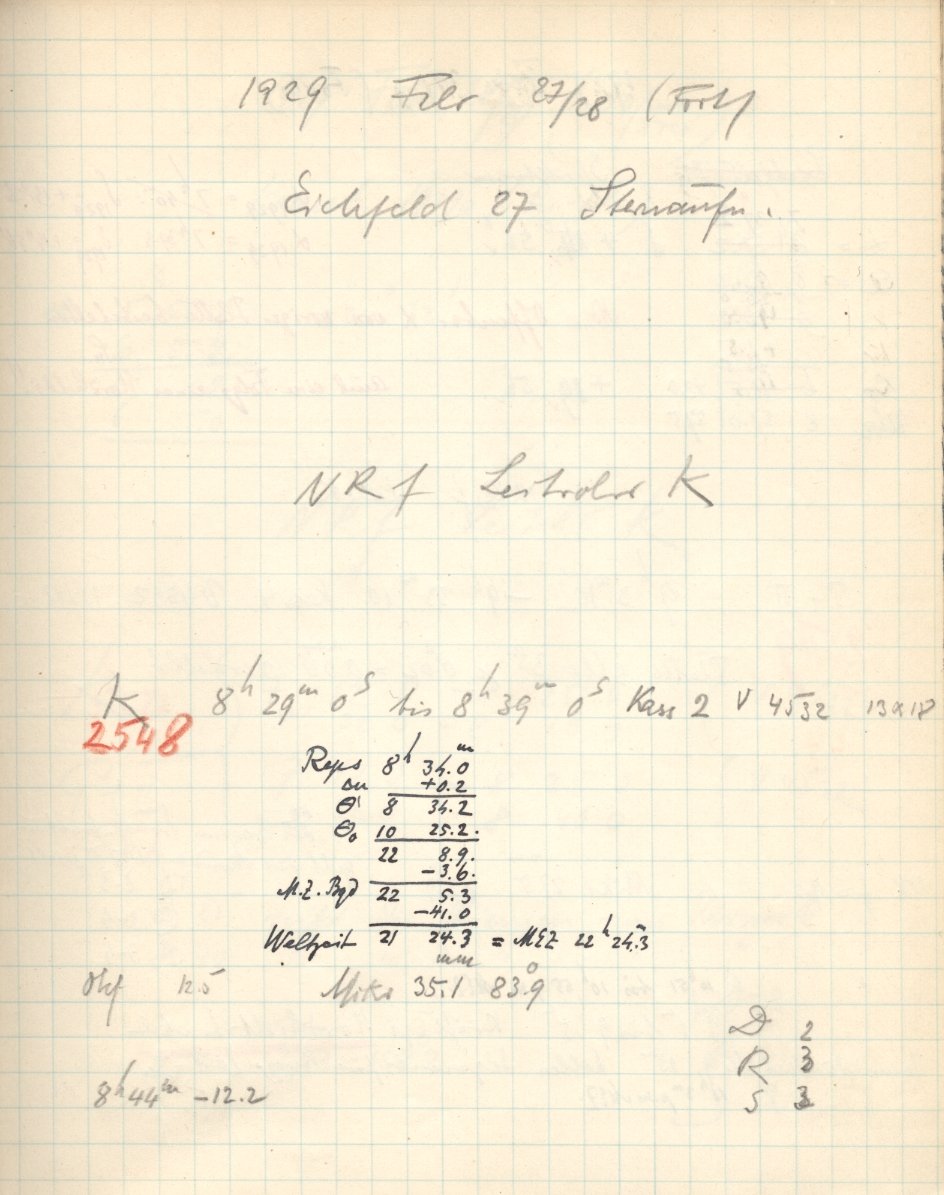 1929 Febr 27/28 (Forts)
Eichfeld 27 Sternaufn.
NRf Leitrohr K
K 8h 29m 0s bis 8h 39m 0s Kass 2 V 4532 13x18
2548
Reps 8h 34.0m
Δu +0.2
Θ 8 34.2
Θ₀ 10 25.2.
22 8.9.
-3.6.
M.Z. Bgd 22 5.3
-41.0
Weltzeit 21 24.3 = MEZ 22h 24.3m
Okf 12.5 Mikr 35.1mm 83.9°
D 2
R 3
8h44m -12.2
S 3